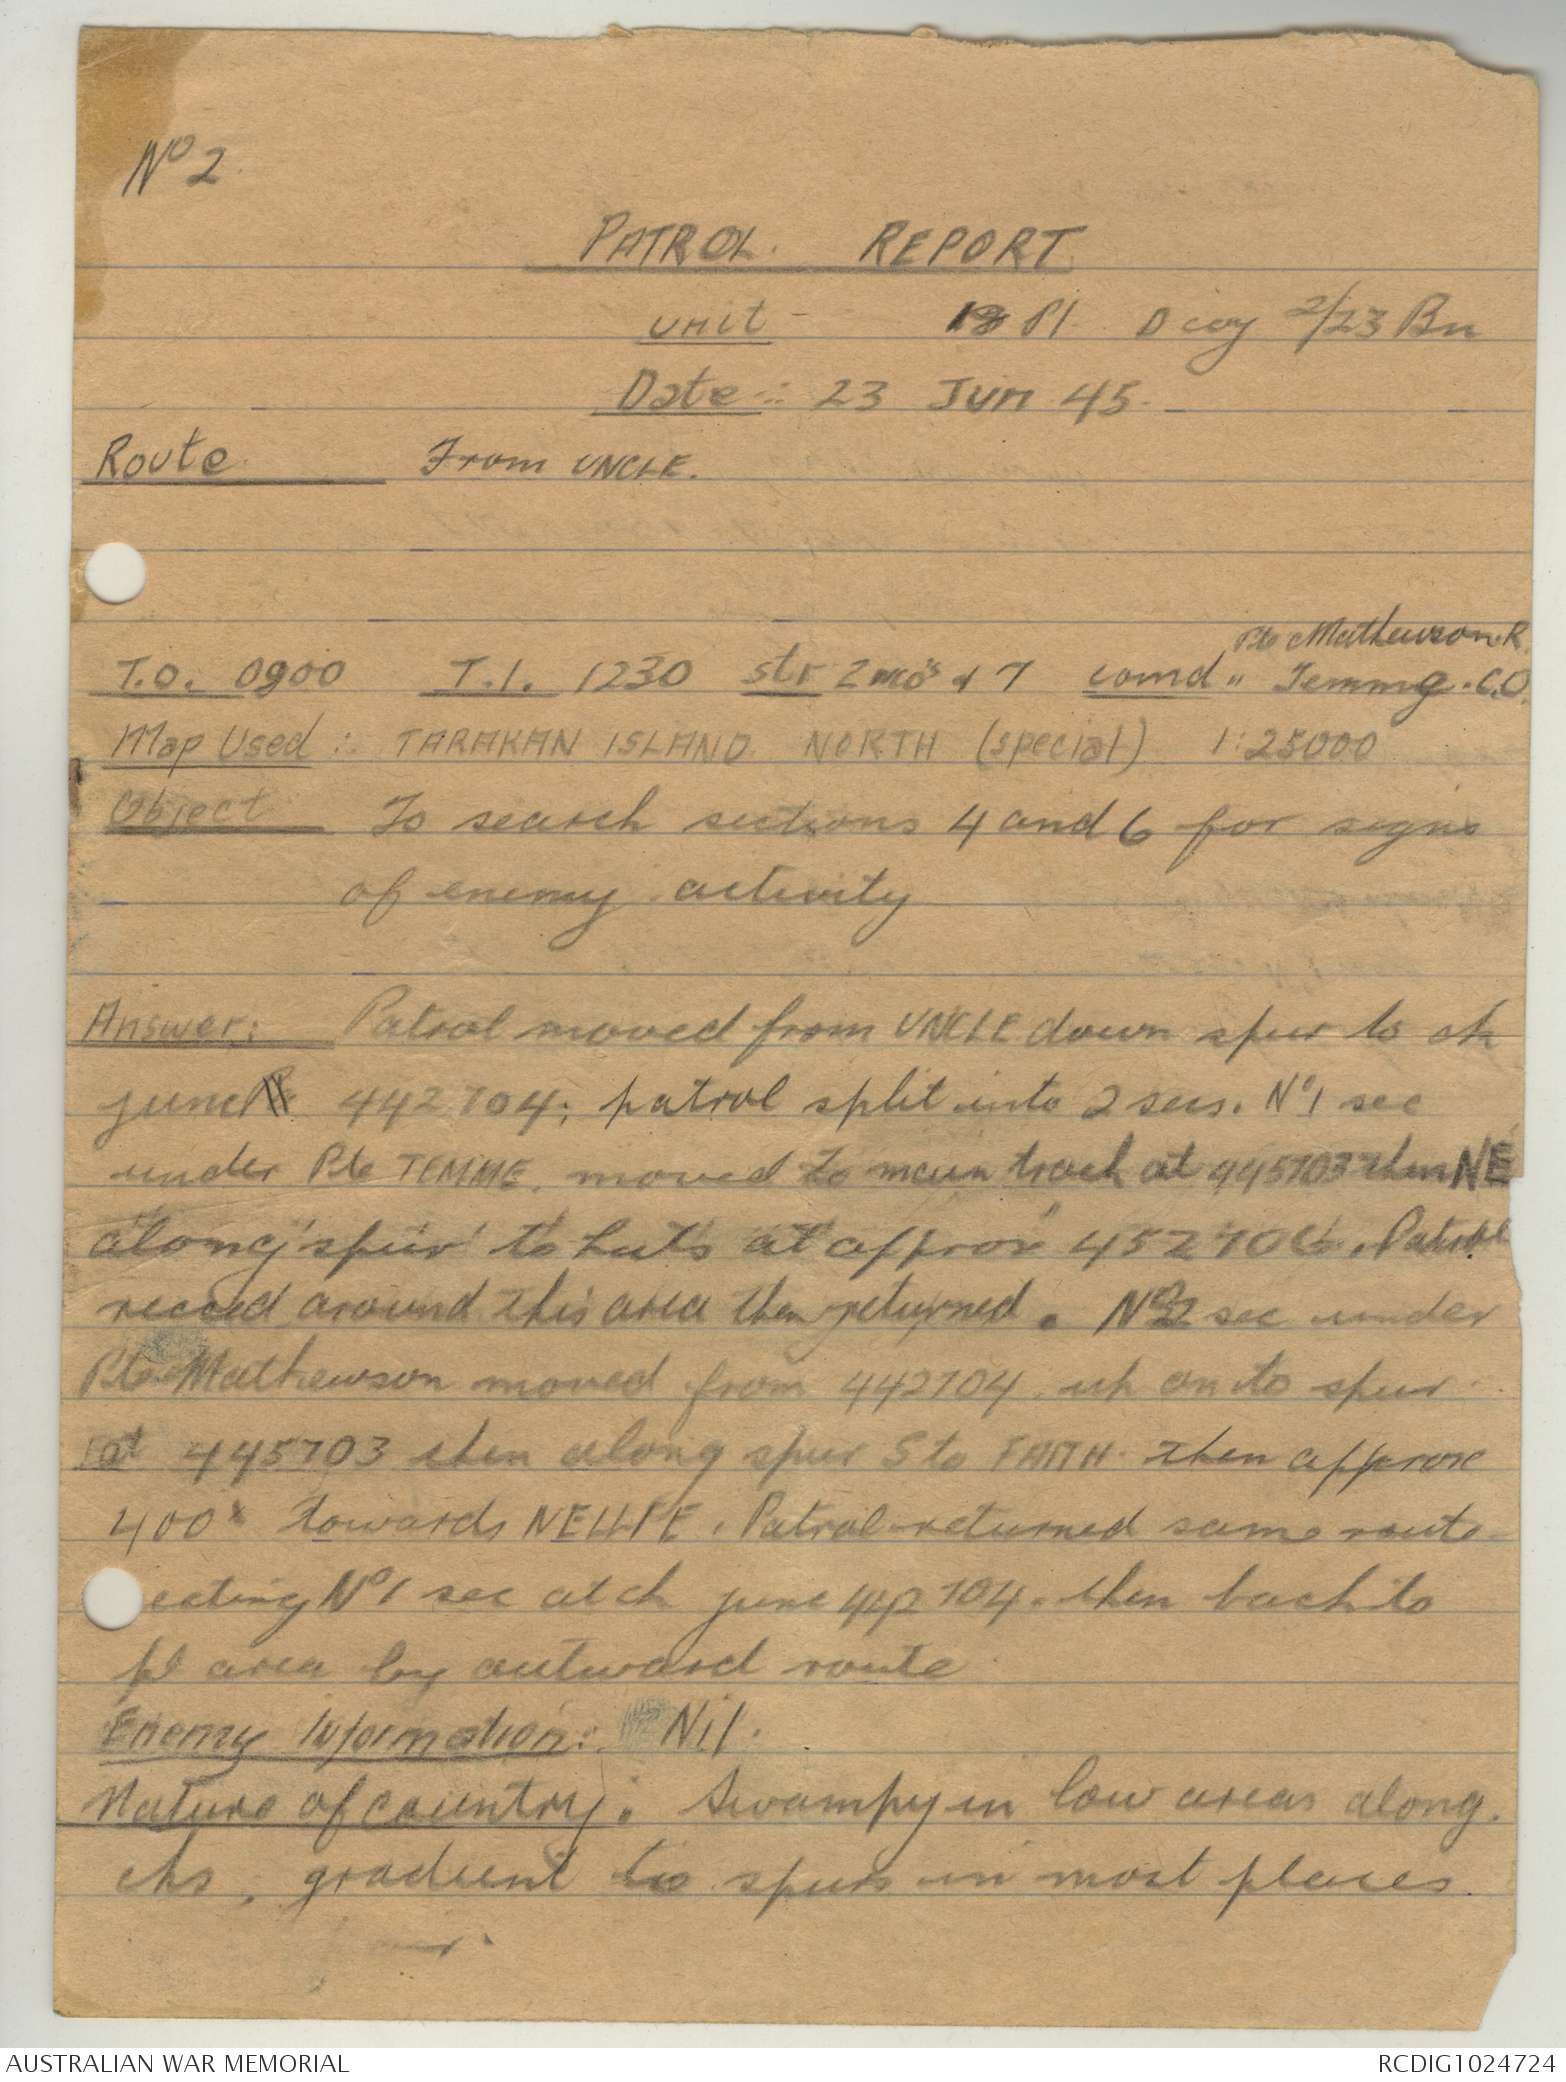 No 2.
PATROL REPORT
Unit - 18 Pl. D coy 2/23 Bn
Date:- 23 Jun 45.
Route From UNCLE.
Pte Mathewson. R.
T.O. 0900 T.I. 1230 str 2 nco's & 7 comd " Temme. C.O.
Map Used :- TARAKAN ISLAND NORTH (special) 1:25000
Object To search sections 4 and 6 for signs
of enemy activity
Answer: Patrol moved from UNCLE down spur to ck
junc 442704; patrol split into 2 secs. No 1 sec
under Pte TEMME. moved to main track at 445703 then NE
along spur to huts at approx 452706. Patrol
recced around this area then returned. No 2 sec under
Pte Mathewson moved from 442704 up on to spur
at 445703 then along spur S to FAITH. then approx
400x towards NELLIE. Patrol returned same route
eeting No 1 sec at ck junc 442704. then back to
pl area by outward route
Enemy Information:. Nil.
Nature of country: Swampy in low areas along.
cks, gradient to spurs in most places
AUSTRALIAN WAR MEMORIAL
RCDIG1024724